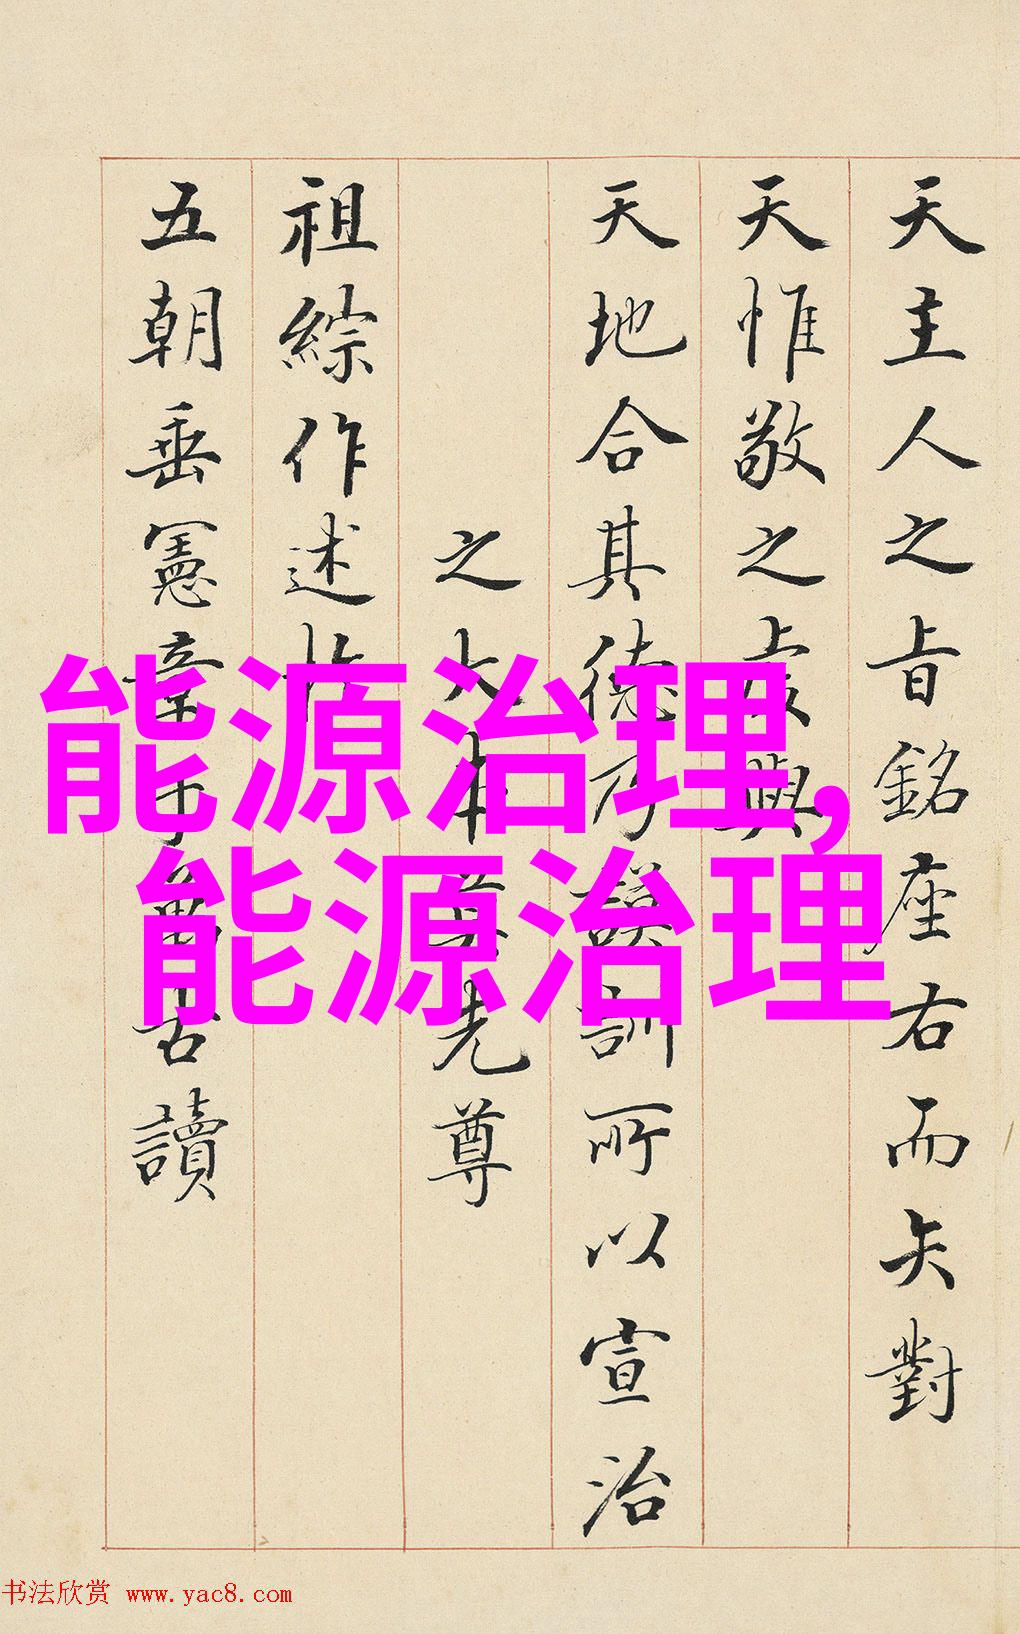 天主人之旨銘座右而矢對
天惟敬之
天地合其德乃謨訓所以宣治
之大本其先尊
祖綜作述
五朝垂憲章于萬古讀
能源治理,
能源治理
书法欣赏 www.yac8.com